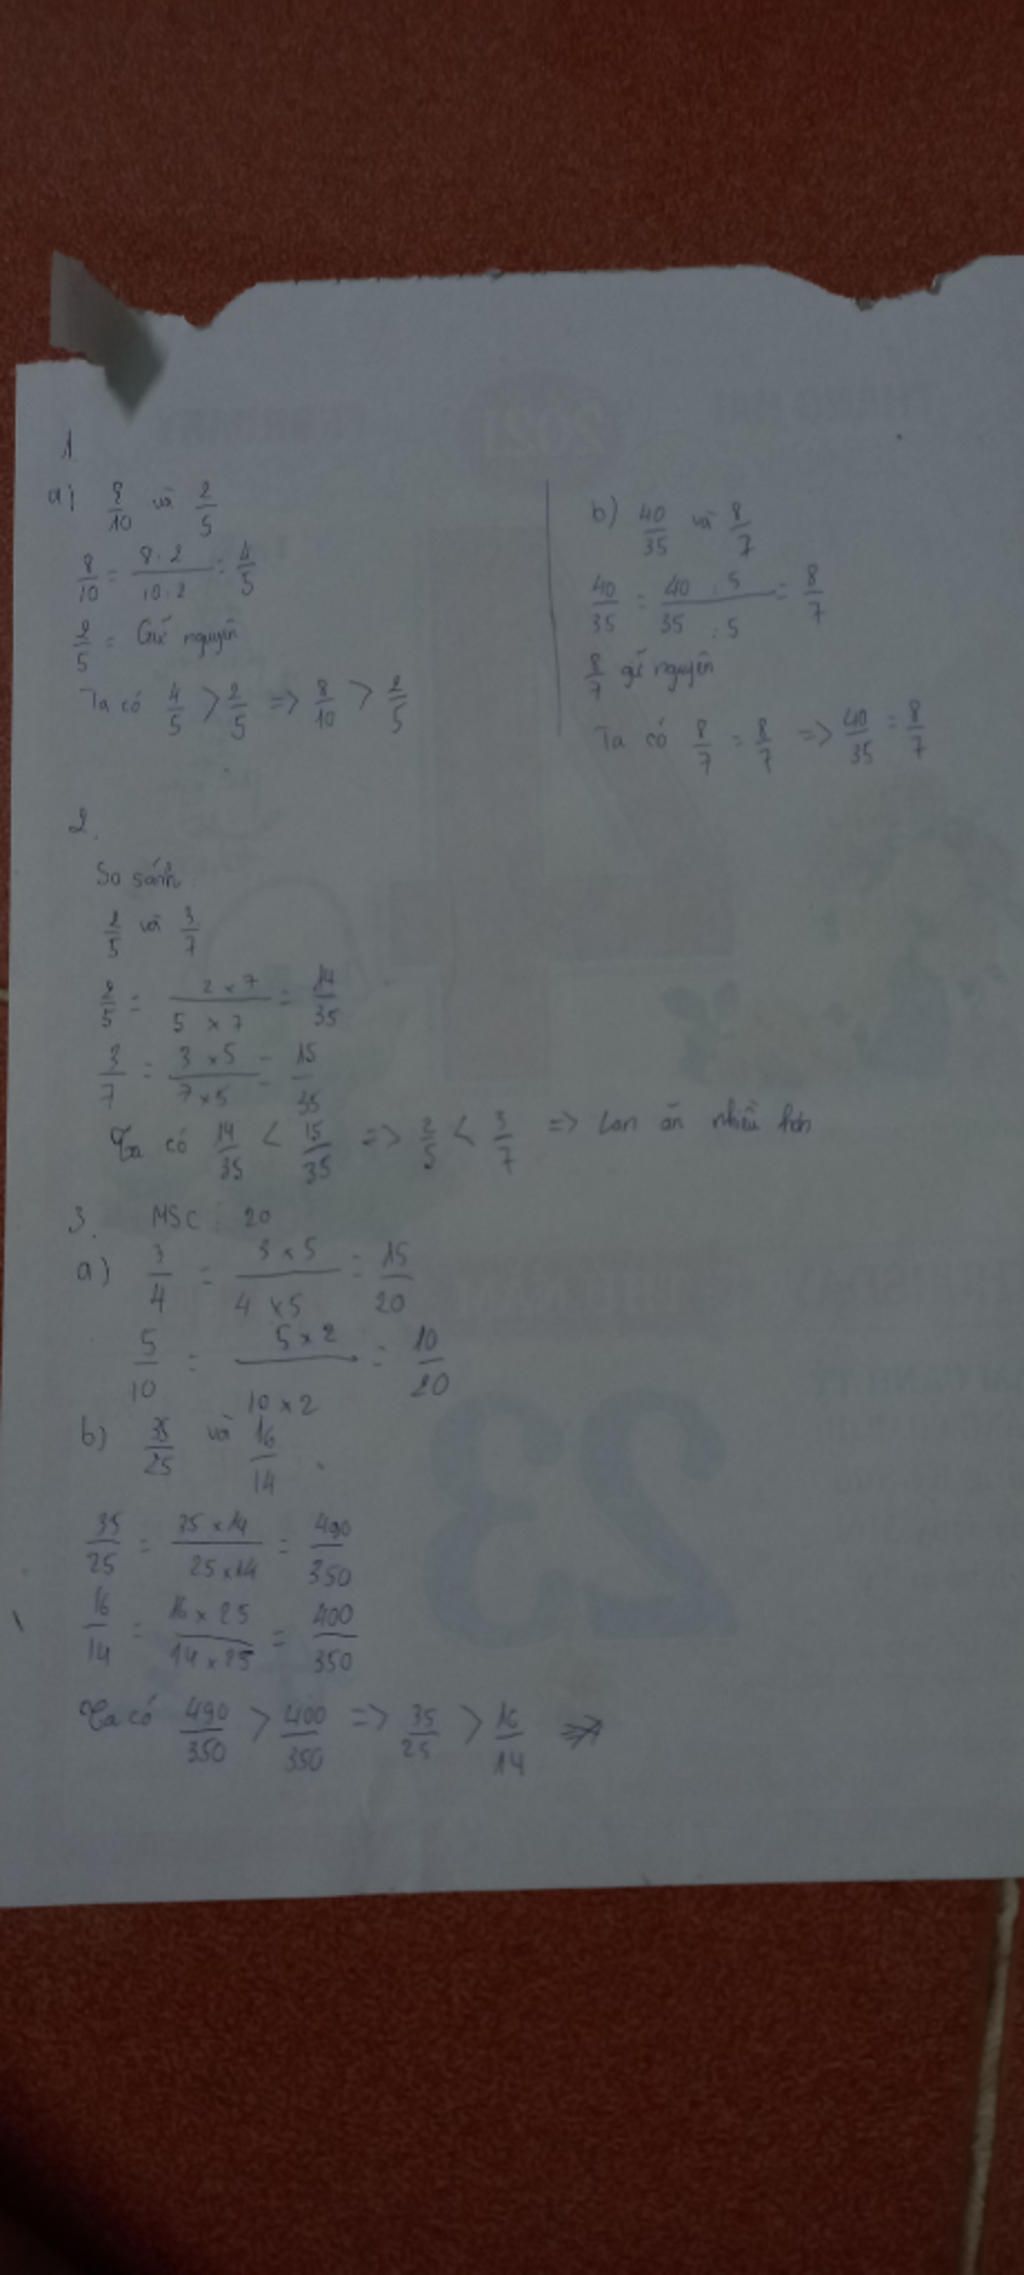 1
a) 8/10 và 2/5
8/10 = 8 : 2 / 10 : 2 = 4/5
2/5 = Giữ nguyên
Ta có 4/5 > 2/5 => 8/10 > 2/5
b) 40/35 và 8/7
40/35 = 40 : 5 / 35 : 5 = 8/7
8/7 giữ nguyên
Ta có 8/7 = 8/7 => 40/35 = 8/7
2.
So sánh
2/5 và 3/7
2/5 = 2 x 7 / 5 x 7 = 14/35
3/7 = 3 x 5 / 7 x 5 = 15/35
Ta có 14/35 < 15/35 => 2/5 < 3/7 => Lan ăn nhiều hơn
3. MSC : 20
a) 3/4 = 3 x 5 / 4 x 5 = 15/20
5/10 = 5 x 2 / 10 x 2 = 10/20
b) 35/25 và 16/14
35/25 = 35 x 14 / 25 x 14 = 490/350
16/14 = 16 x 25 / 14 x 25 = 400/350
Ta có 490/350 > 400/350 => 35/25 > 16/14
2021
23